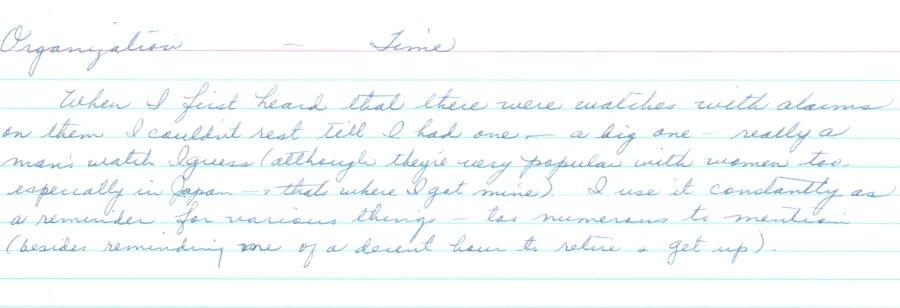 Organization - Time
When I first heard that there were watches with alarms
on them I couldn't rest till I had one - a big one - really a
man's watch I guess (although they're very popular with women too
especially in Japan - & that's where I got mine). I use it constantly as
a reminder for various things - too numerous to mention
(besides reminding me of a decent hour to retire & get up).